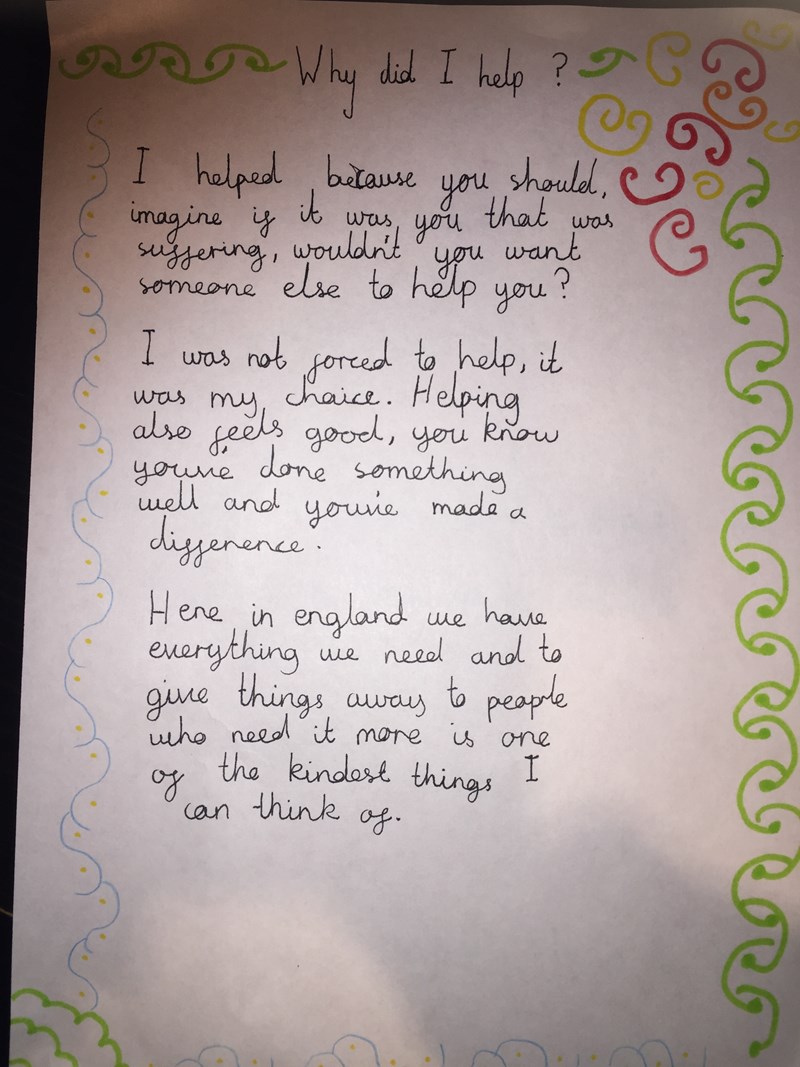 Why did I help ?
I helped because you should,
imagine if it was you that was
suffering, wouldn't you want
someone else to help you?
I was not forced to help, it
was my choice. Helping
also feels good, you know
you've done something
well and you've made a
difference.
Here in england we have
everything we need and to
give things away to people
who need it more is one
of the kindest things I
can think of.